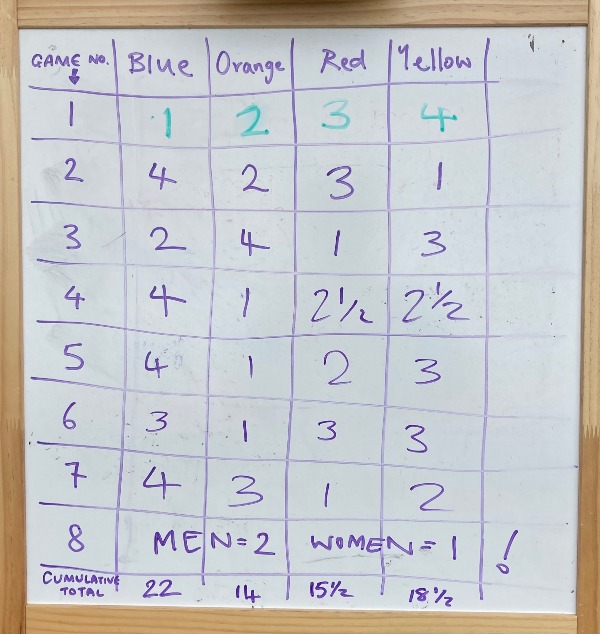 GAME NO. Blue Orange Red Yellow
1 1 2 3 4
2 4 2 3 1
3 2 4 1 3
4 4 1 2½ 2½
5 4 1 2 3
6 3 1 3 3
7 4 3 1 2
8 MEN=2 WOMEN=1 !
CUMULATIVE TOTAL 22 14 15½ 18½